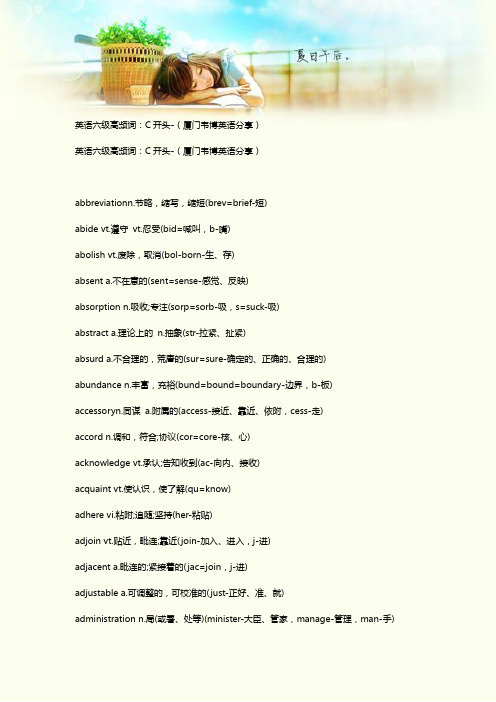 夏日午后。
英语六级高频词：C开头-（厦门韦博英语分享）
英语六级高频词：C开头-（厦门韦博英语分享）
abbreviationn.节略，缩写，缩短(brev=brief-短)
abide vt.遵守 vt.忍受(bid=喊叫，b-嘴)
abolish vt.废除，取消(bol-born-生、存)
absent a.不在意的(sent=sense-感觉、反映)
absorption n.吸收;专注(sorp=sorb-吸，s=suck-吸)
abstract a.理论上的 n.抽象(str-拉紧、扯紧)
absurd a.不合理的，荒唐的(sur=sure-确定的、正确的、合理的)
abundance n.丰富，充裕(bund=bound=boundary-边界，b-板)
accessoryn.同谋 a.附属的(access-接近、靠近、依附，cess-走)
accord n.调和，符合;协议(cor=core-核、心)
acknowledge vt.承认;告知收到(ac-向内、接收)
acquaint vt.使认识，使了解(qu=know)
adhere vi.粘附;追随;坚持(her-粘贴)
adjoin vt.贴近，毗连;靠近(join-加入、进入，j-进)
adjacent a.毗连的;紧接着的(jac=join，j-进)
adjustable a.可调整的，可校准的(just-正好、准、就)
administration n.局(或署、处等)(minister-大臣、管家，manage-管理，man-手)